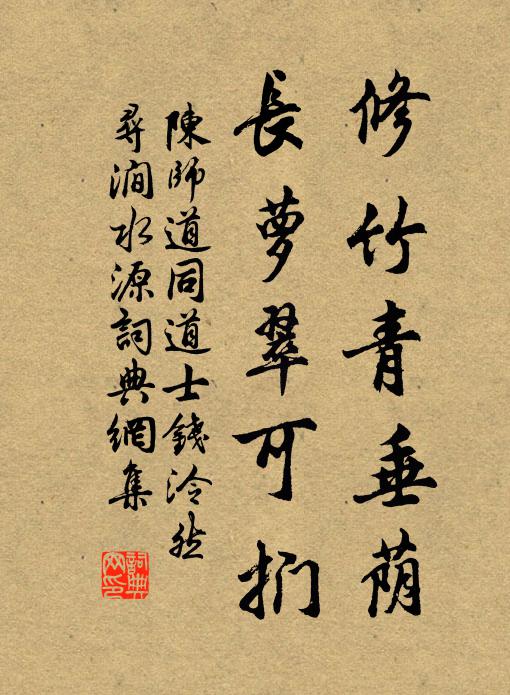 修竹青垂荫
长萝翠可扪
陳師道同道士錢泠然
尋澗水源詞典網集
詞典